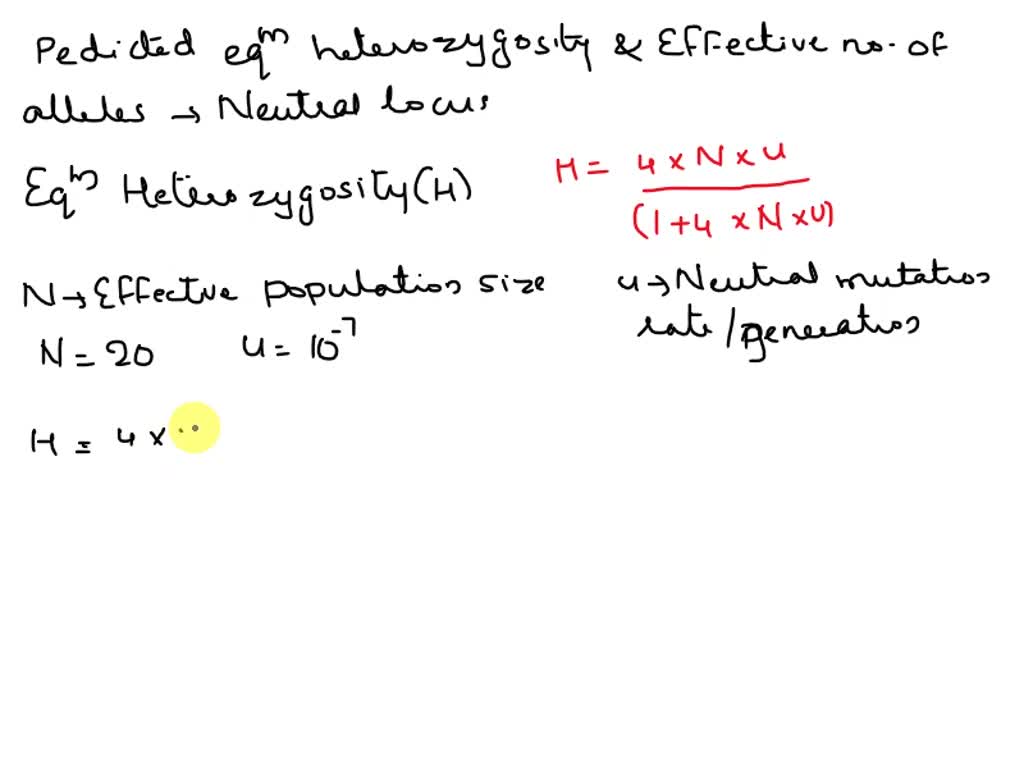 Pedicted eqm heterozygosity & Effective no. of
alleles → Neutral locus
Eqm Heterozygosity (H)
H = 4 x N x u / (1 + 4 x N x U)
N → Effective population size
u → Neutral mutation
rate / generation
N = 20 u = 10^-7
H = 4 x